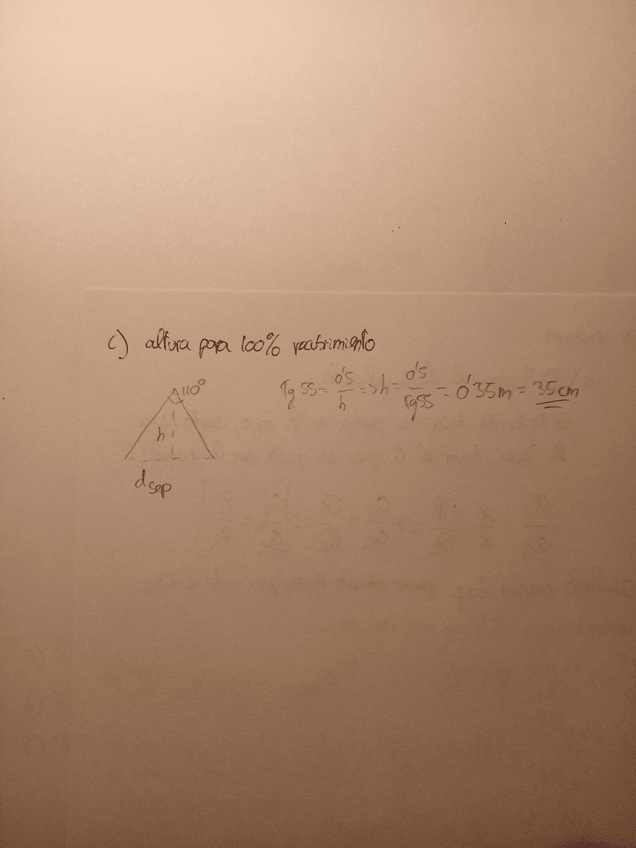 c) altura para 100% recubrimiento
110º
Tg 55 = 0'5/h => h = 0'5/Tg55 = 0'35m = 35cm
h
dsep